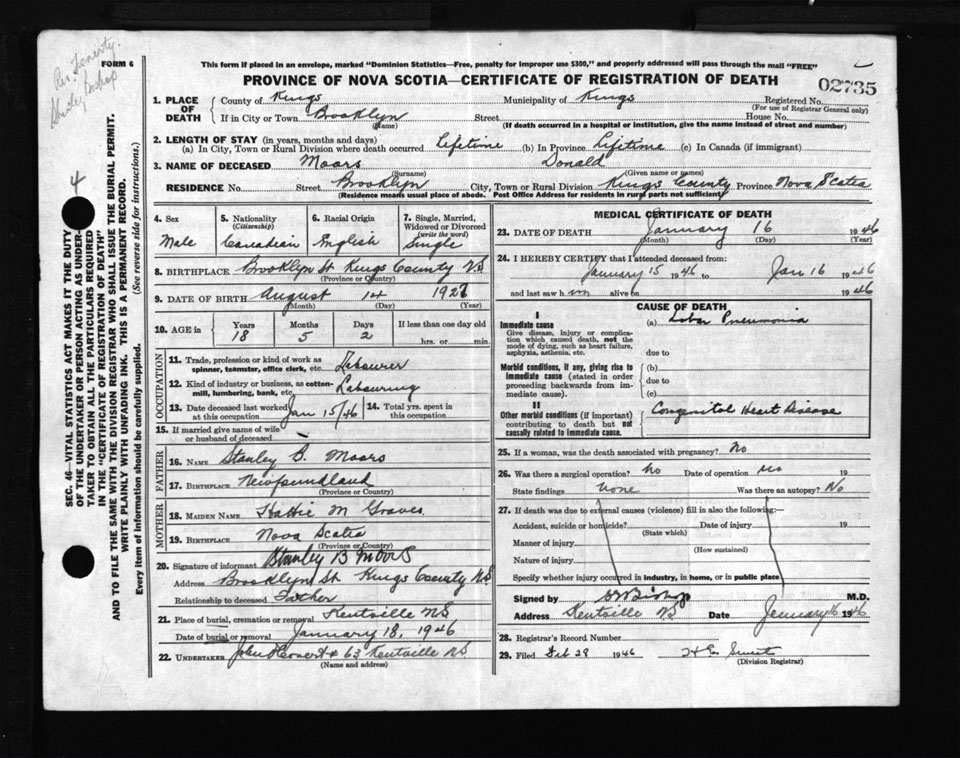 Rev. Fenerty.
Shirley Bishop
FORM 6
This form if placed in an envelope, marked "Dominion Statistics—Free, penalty for improper use $300," and properly addressed will pass through the mail "FREE"
PROVINCE OF NOVA SCOTIA—CERTIFICATE OF REGISTRATION OF DEATH
02735
1. PLACE OF DEATH County of Kings Municipality of Kings Registered No.
(For use of Registrar General only)
If in City or Town Brooklyn Street House No.
(Name) (If death occurred in a hospital or institution, give the name instead of street and number)
2. LENGTH OF STAY (in years, months and days)
(a) In City, Town or Rural Division where death occurred Lifetime (b) In Province Lifetime (c) In Canada (if immigrant)
3. NAME OF DECEASED Moors Donald
(Surname) (Given name or names)
RESIDENCE No. Street Brooklyn City, Town or Rural Division Kings County Province Nova Scotia
(Residence means usual place of abode. Post Office Address for residents in rural parts not sufficient)
4. Sex
Male
5. Nationality
(Citizenship)
Canadian
6. Racial Origin
English
7. Single, Married, Widowed or Divorced
(write the word)
Single
8. BIRTHPLACE Brooklyn St Kings County NS
(Province or Country)
9. DATE OF BIRTH August 14 1927
(Month) (Day) (Year)
10. AGE in Years Months Days If less than one day old
18 5 2 hrs. or min.
OCCUPATION
11. Trade, profession or kind of work as spinner, teamster, office clerk, etc. Labourer
12. Kind of industry or business, as cotton-mill, lumbering, bank, etc. Labouring
13. Date deceased last worked at this occupation Jan 15/46 14. Total yrs. spent in this occupation
15. If married give name of wife or husband of deceased
FATHER
16. NAME Stanley B. Moors
17. BIRTHPLACE Newfoundland
(Province or Country)
MOTHER
18. MAIDEN NAME Hattie M Graves
19. BIRTHPLACE Nova Scotia
(Province or Country)
20. Signature of informant Stanley B Moors
Address Brooklyn St. Kings County NS
Relationship to deceased Father
21. Place of burial, cremation or removal Kentville NS
Date of burial or removal January 18, 1946
22. UNDERTAKER # 63 Kentville NS
(Name and address)
MEDICAL CERTIFICATE OF DEATH
23. DATE OF DEATH January 16 1946
(Month) (Day) (Year)
24. I HEREBY CERTIFY that I attended deceased from:
January 15 1946 to Jan 16 1946
and last saw him alive on 1946
CAUSE OF DEATH
I
Immediate cause
Give disease, injury or complication which caused death, not the mode of dying, such as heart failure, asphyxia, asthenia, etc.
(a) Lobar Pneumonia
due to
Morbid conditions, if any, giving rise to immediate cause (stated in order proceeding backwards from immediate cause).
(b)
due to
(c)
II
Other morbid conditions (if important) contributing to death but not causally related to immediate cause.
Congenital Heart Disease
25. If a woman, was the death associated with pregnancy? No
26. Was there a surgical operation? No Date of operation no 19
State findings None Was there an autopsy? No
27. If death was due to external causes (violence) fill in also the following:—
Accident, suicide or homicide? Date of injury 19
(State which)
Manner of injury
(How sustained)
Nature of injury
Specify whether injury occurred in industry, in home, or in public place
Signed by Bishop M.D.
Address Kentville NS Date January 16 1946
28. Registrar's Record Number
29. Filed Feb 28 1946
(Division Registrar)
4
SEC. 46—VITAL STATISTICS ACT MAKES IT THE DUTY
OF THE UNDERTAKER OR PERSON ACTING AS UNDER-
TAKER TO OBTAIN ALL THE PARTICULARS REQUIRED
IN THE "CERTIFICATE OF REGISTRATION OF DEATH"
AND TO FILE THE SAME WITH THE DIVISION REGISTRAR WHO SHALL ISSUE THE BURIAL PERMIT.
WRITE PLAINLY WITH UNFADING INK. THIS IS A PERMANENT RECORD.
Every item of information should be carefully supplied. (See reverse side for instructions.)